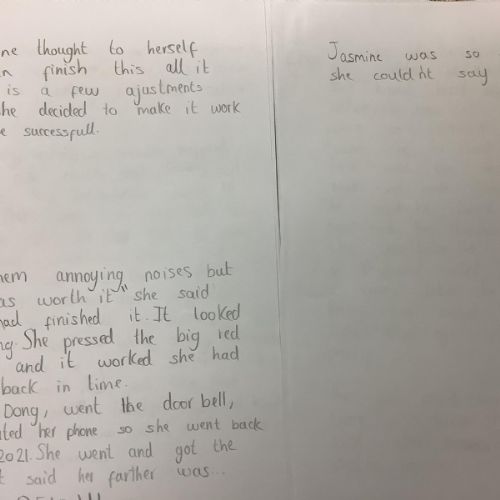 ne thought to herself
n finish this all it
is a few ajustments
he decided to make it work
e successfull.
hem annoying noises but
as worth it" she said
had finished it. It looked
ng. She pressed the big red
and it worked she had
back in time.
Dong, went the door bell,
ted her phone so she went back
2021. She went and got the
t said her farther was...
Jasmine was so
she could'nt say